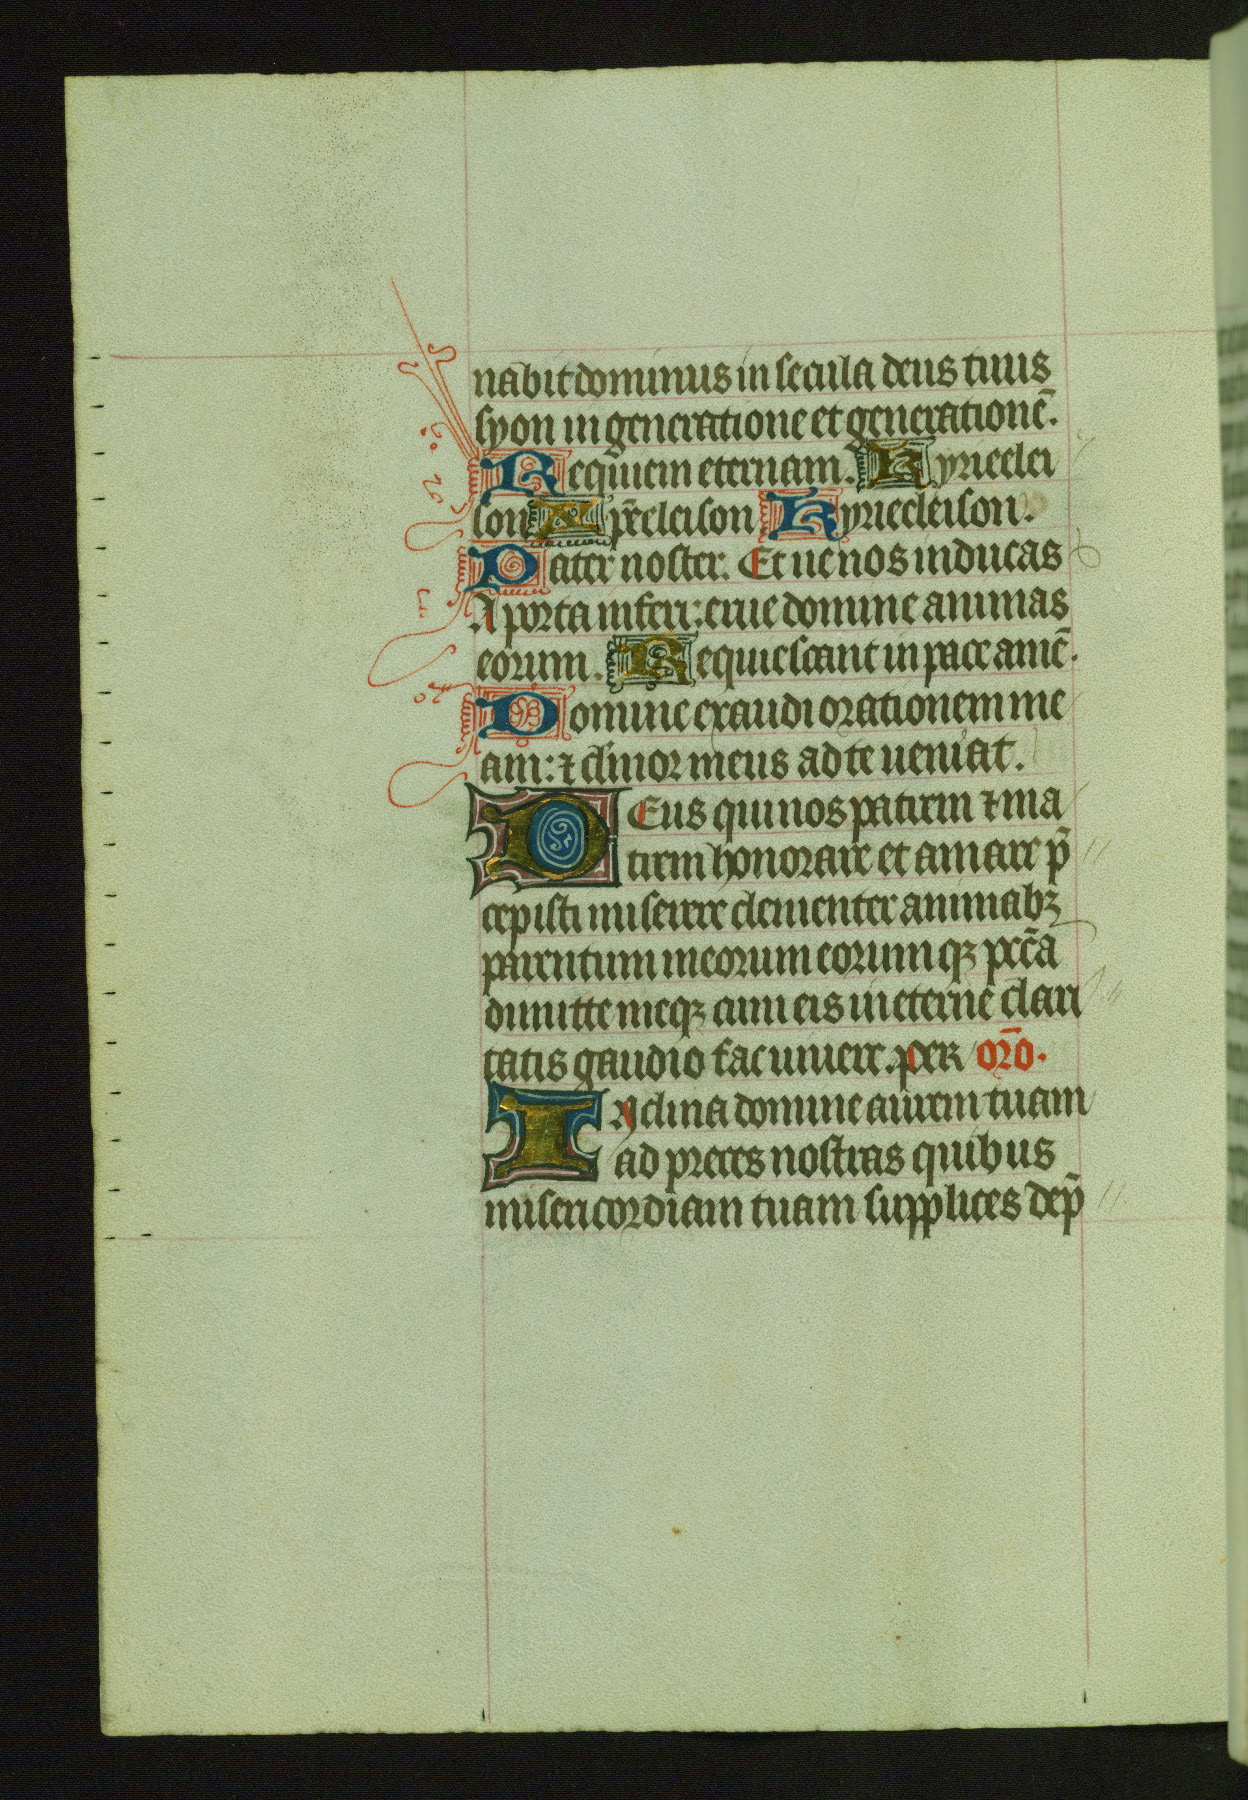 nabit dominus in secula deus tuus
syon in generatione et generationē.
Requiem eternam. Kyrieelei
son Xp̄eleison Kyrieeleison.
Pater noster. Et ne nos inducas
A porta inferi: erue domine animas
eorum. Requiescant in pace amē.
Domine exaudi orationem me
am: ⁊ clamor meus ad te ueniat.
DEus qui nos patrem ⁊ ma
trem honorare et amare p̄
cepisti miserere clementer animabꝫ
parentum meorum eorumqꝫ pctā
dimitte meqꝫ cum eis in eterne clari
tatis gaudio fac uiuere. per or̄o.
INclina domine aurem tuam
ad preces nostras quibus
misericordiam tuam supplices dep̄